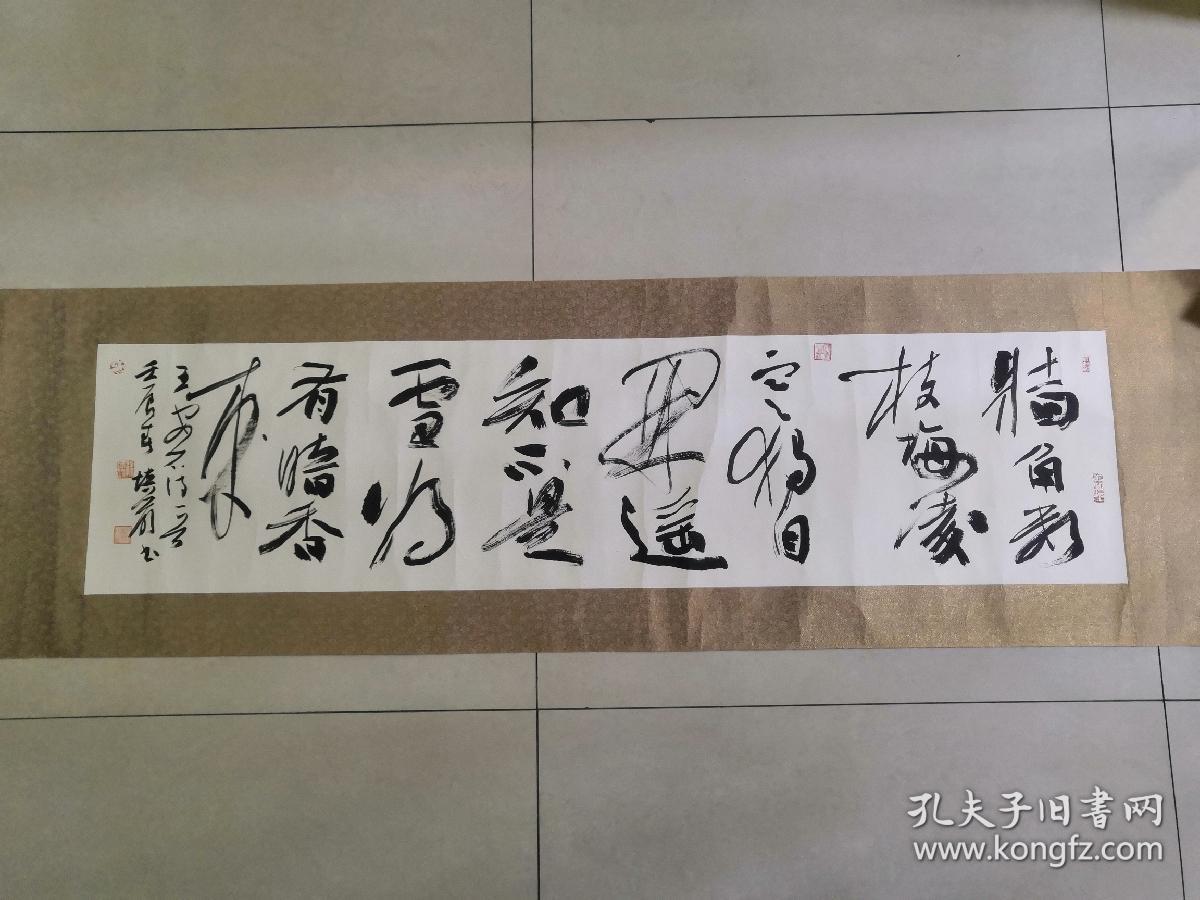 牆角数
枝梅凌
寒獨自
開遥
知不是
雪為
有暗香
来
王安石詩一首
壬辰春 培蔚书
孔夫子旧書网
www.kongfz.com